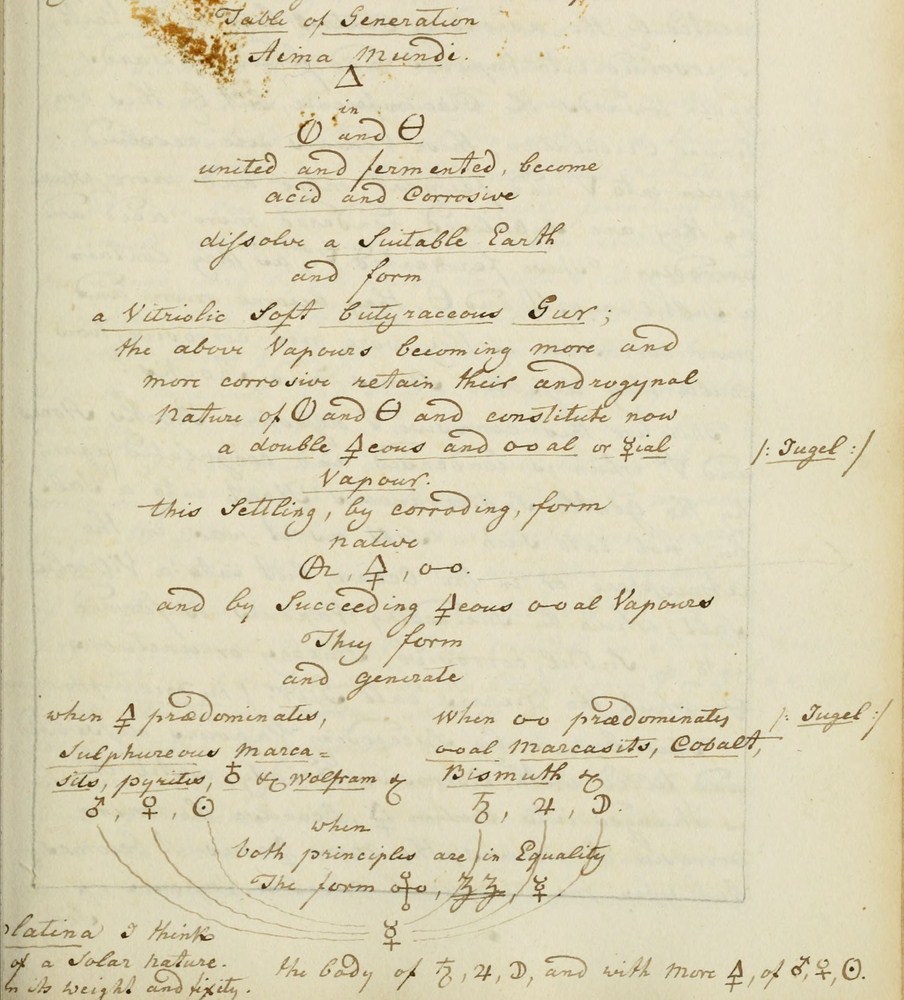 Table of Generation
Anima Mundi.
🜂
in
🜕 and 🜔
united and fermented, become
acid and Corrosive
dissolve a Suitable Earth
and form
a Vitriolic Soft butyraceous Gur;
the above Vapours becoming more and
more corrosive retain their androgynal
Nature of 🜕 and 🜔 and constitute now
a double 🜍eous and o-oal or ☿ial /: Jugel :/
Vapour.
this Settling, by corroding, form
native
🜍, o-o.
and by Succeeding 🜍eous o-oal Vapours
They form
and generate
when 🜍 prædominates,
Sulphureous Marca=
sits, pyrites, ♁ &c Wolfram &c
♂, ♀, ☉
When o-o prædominates /: Jugel :/
o-oal Marcasits, Cobalt,
Bismuth &c
♄, ♃, ☽.
when
both principles are in Equality
The form , ☿
☿
platina I think
of a Solar nature.
in its weight and fixity.
the body of ♄, ♃, ☽, and with more 🜍, of ♂, ♀, ☉.